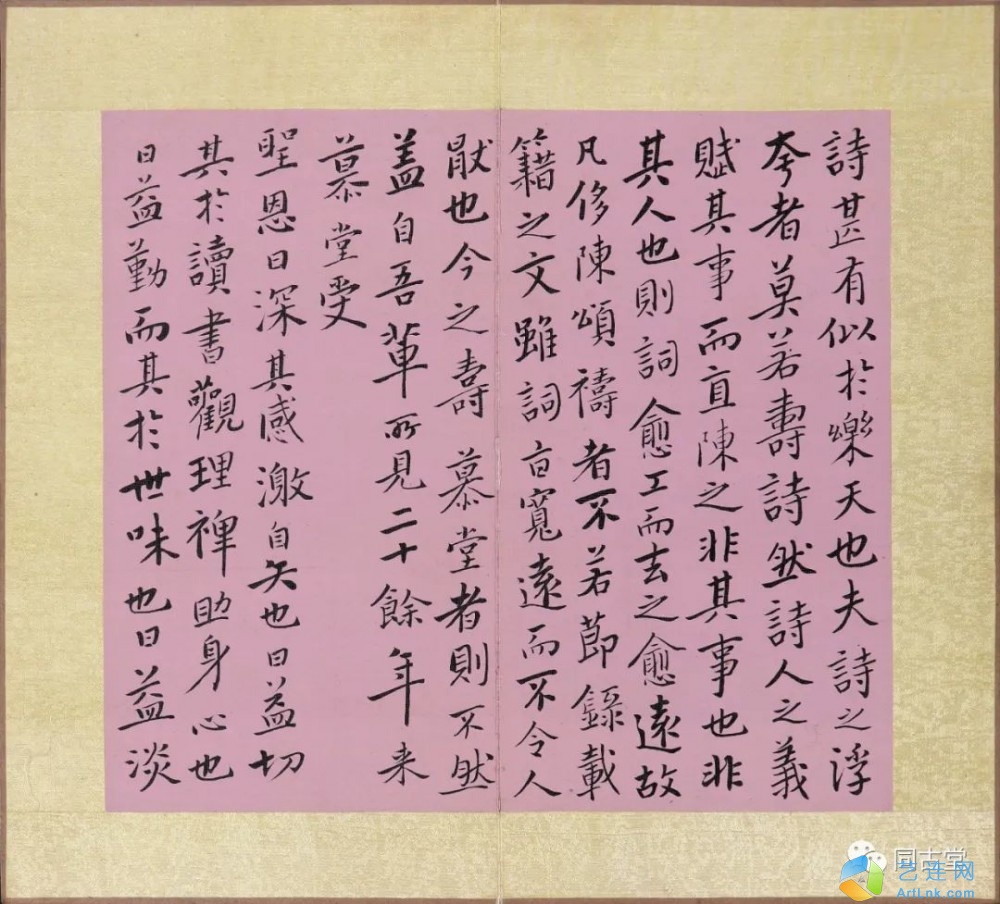 詩甚有似於樂天也夫詩之浮
夸者莫若壽詩然詩人之義
賦其事而直陳之非其事也非
其人也則詞愈工而去之愈遠故
凡侈陳頌禱者不若節錄載
籍之文雖詞旨寬遠而不令人
猒也今之壽慕堂者則不然
盖自吾輩所見二十餘年来
慕堂受
聖恩日深其感激自矢也日益切
其於讀書觀理裨助身心也
日益勤而其於世味也日益淡
同古堂
艺连网
ArtLnk.com